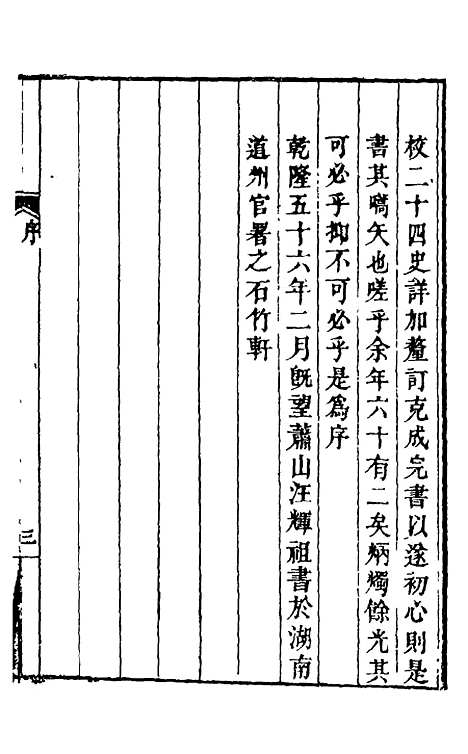 校二十四史詳加釐訂克成完書以遂初心則是
書其嚆矢也嗟乎余年六十有二矣炳燭餘光其
可必乎抑不可必乎是爲序
乾隆五十六年二月旣望蕭山汪輝祖書於湖南
道州官署之石竹軒
序
三